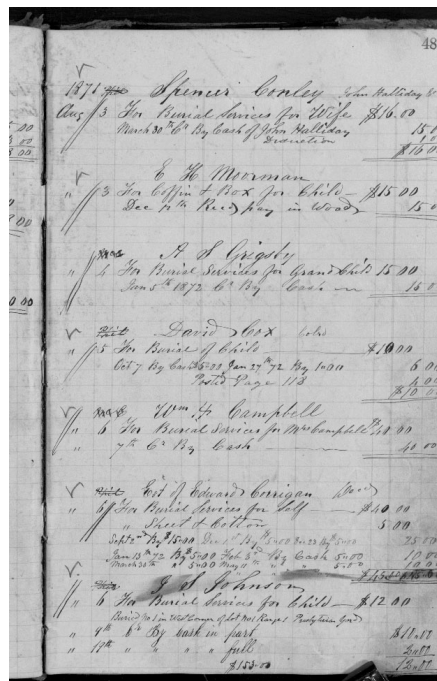 48
1871 Spencer Conley John Halliday
Aug 3 For Burial Services for Wife $16.00
March 30th Cr By Cash of John Halliday 15.0
Discretion 1.0
$16.0
E H Moorman
" 3 For Coffin & Box for Child — $15 00
Dec 12th Recd pay in Wood 15.0
A S Grigsby
" 4 For Burial Services for Grand Child 15 00
Jan 5th 1872 Cr By Cash — 15 0
David Cox Cold
" 5 For Burial of Child — $10 00
Oct 7 By Cash 5.00 Jan 27th 72 By 1.00 6 00
Posted Page 113 4 00
$10 00
Wm H Campbell
" 6 For Burial Services for Mrs Campbell $40 00
" 7th Cr By Cash — 40 00
Est of Edward Corrigan Dead
" 6 For Burial Services for Self — $40 00
" Sheet & Cotton 5 00
Sept 2nd By $15.00 Dec By 5.00 By 5.00 25 00
Jan 13th 72 By 5.00 Feb 3d By Cash 5.00 10 00
March 30th " 5.00 May 11th " " 5.00 10 00
J S Johnson
" 6 For Burial Services for Child — $12 00
Buried No 1 in West Corner of Lot No Range Presbyterian Gard
" 9th Cr By Cash in part $10.00
" 19th " " " " full 2.00
$153.00 12.00